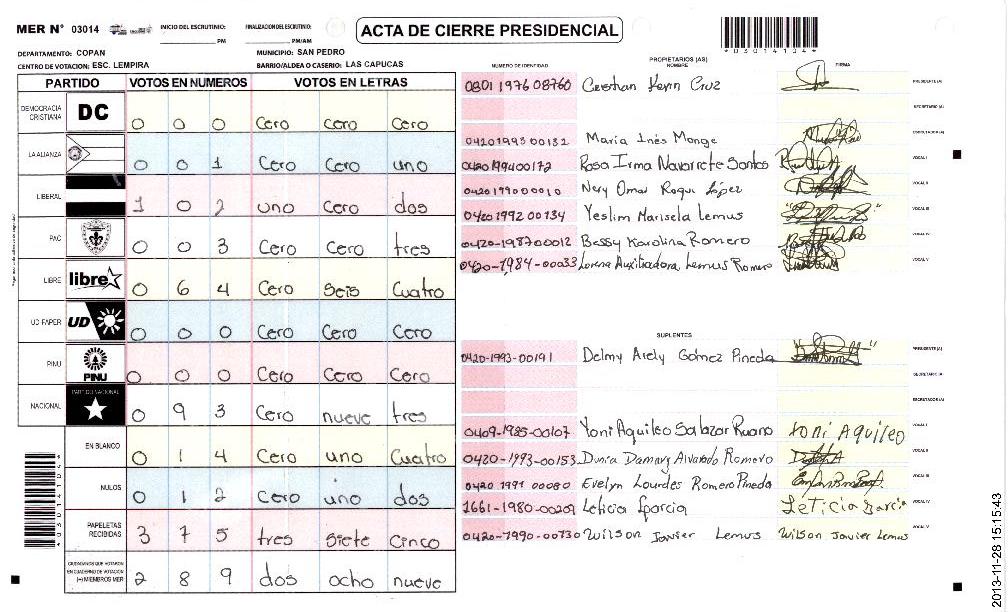 MER Nº 03014
INICIO DEL ESCRUTINIO: PM
FINALIZACION DEL ESCRUTINIO: PM/AM
ACTA DE CIERRE PRESIDENCIAL
DEPARTAMENTO: COPAN
MUNICIPIO: SAN PEDRO
CENTRO DE VOTACION: ESC. LEMPIRA
BARRIO/ALDEA O CASERIO: LAS CAPUCAS
PARTIDO VOTOS EN NUMEROS VOTOS EN LETRAS
DEMOCRACIA CRISTIANA DC 0 0 0 Cero cero Cero
LA ALIANZA 0 0 1 Cero Cero uno
LIBERAL 1 0 2 uno Cero dos
PAC 0 0 3 Cero Cero tres
LIBRE libre 0 6 4 Cero Seis Cuatro
UD FAPER UD 0 0 0 Cero Cero Cero
PINU PINU 0 0 0 Cero Cero Cero
NACIONAL PARTIDO NACIONAL 0 9 3 Cero nueve tres
EN BLANCO 0 1 4 Cero uno Cuatro
NULOS 0 1 2 Cero uno dos
PAPELETAS RECIBIDAS 3 7 5 tres Siete Cinco
CIUDADANOS QUE VOTARON EN CUADERNO DE VOTACION (+) MIEMBROS MER 2 8 9 dos ocho nueve
PROPIETARIOS (AS)
NUMERO DE IDENTIDAD NOMBRE FIRMA
0801 1976 08760 Kevin Cruz PRESIDENTE (A)
SECRETARIO (A)
0420 1993 00132 Maria Inés Monge ESCRUTADOR (A)
0420 1994 00172 Rosa Irma Navarrete Santos VOCAL I
0420 1990 00010 Nery Omar Roque López VOCAL II
0420 1992 00134 Yeslim Marisela Lemus VOCAL III
0420-1987 00012 Bessy Karolina Romero VOCAL IV
0420-1984-00033 Lorena Auxiliadora Lemus Romero VOCAL V
SUPLENTES
0420-1993-00191 Delmy Arely Gómez Pineda PRESIDENTE (A)
SECRETARIO (A)
ESCRUTADOR (A)
0409-1985-00107 Yoni Aquileo Salazar Ruano Yoni Aquileo VOCAL I
0420-1993-00153 Dunia Damary Alvarado Romero VOCAL II
0420 1991 00080 Evelyn Lourdes Romero Pineda VOCAL III
1661-1980-00209 Leticia Garcia Leticia Garcia VOCAL IV
0420-1990-00730 Wilson Javier Lemus Wilson Javier Lemus VOCAL V
2013-11-28 15:15:43